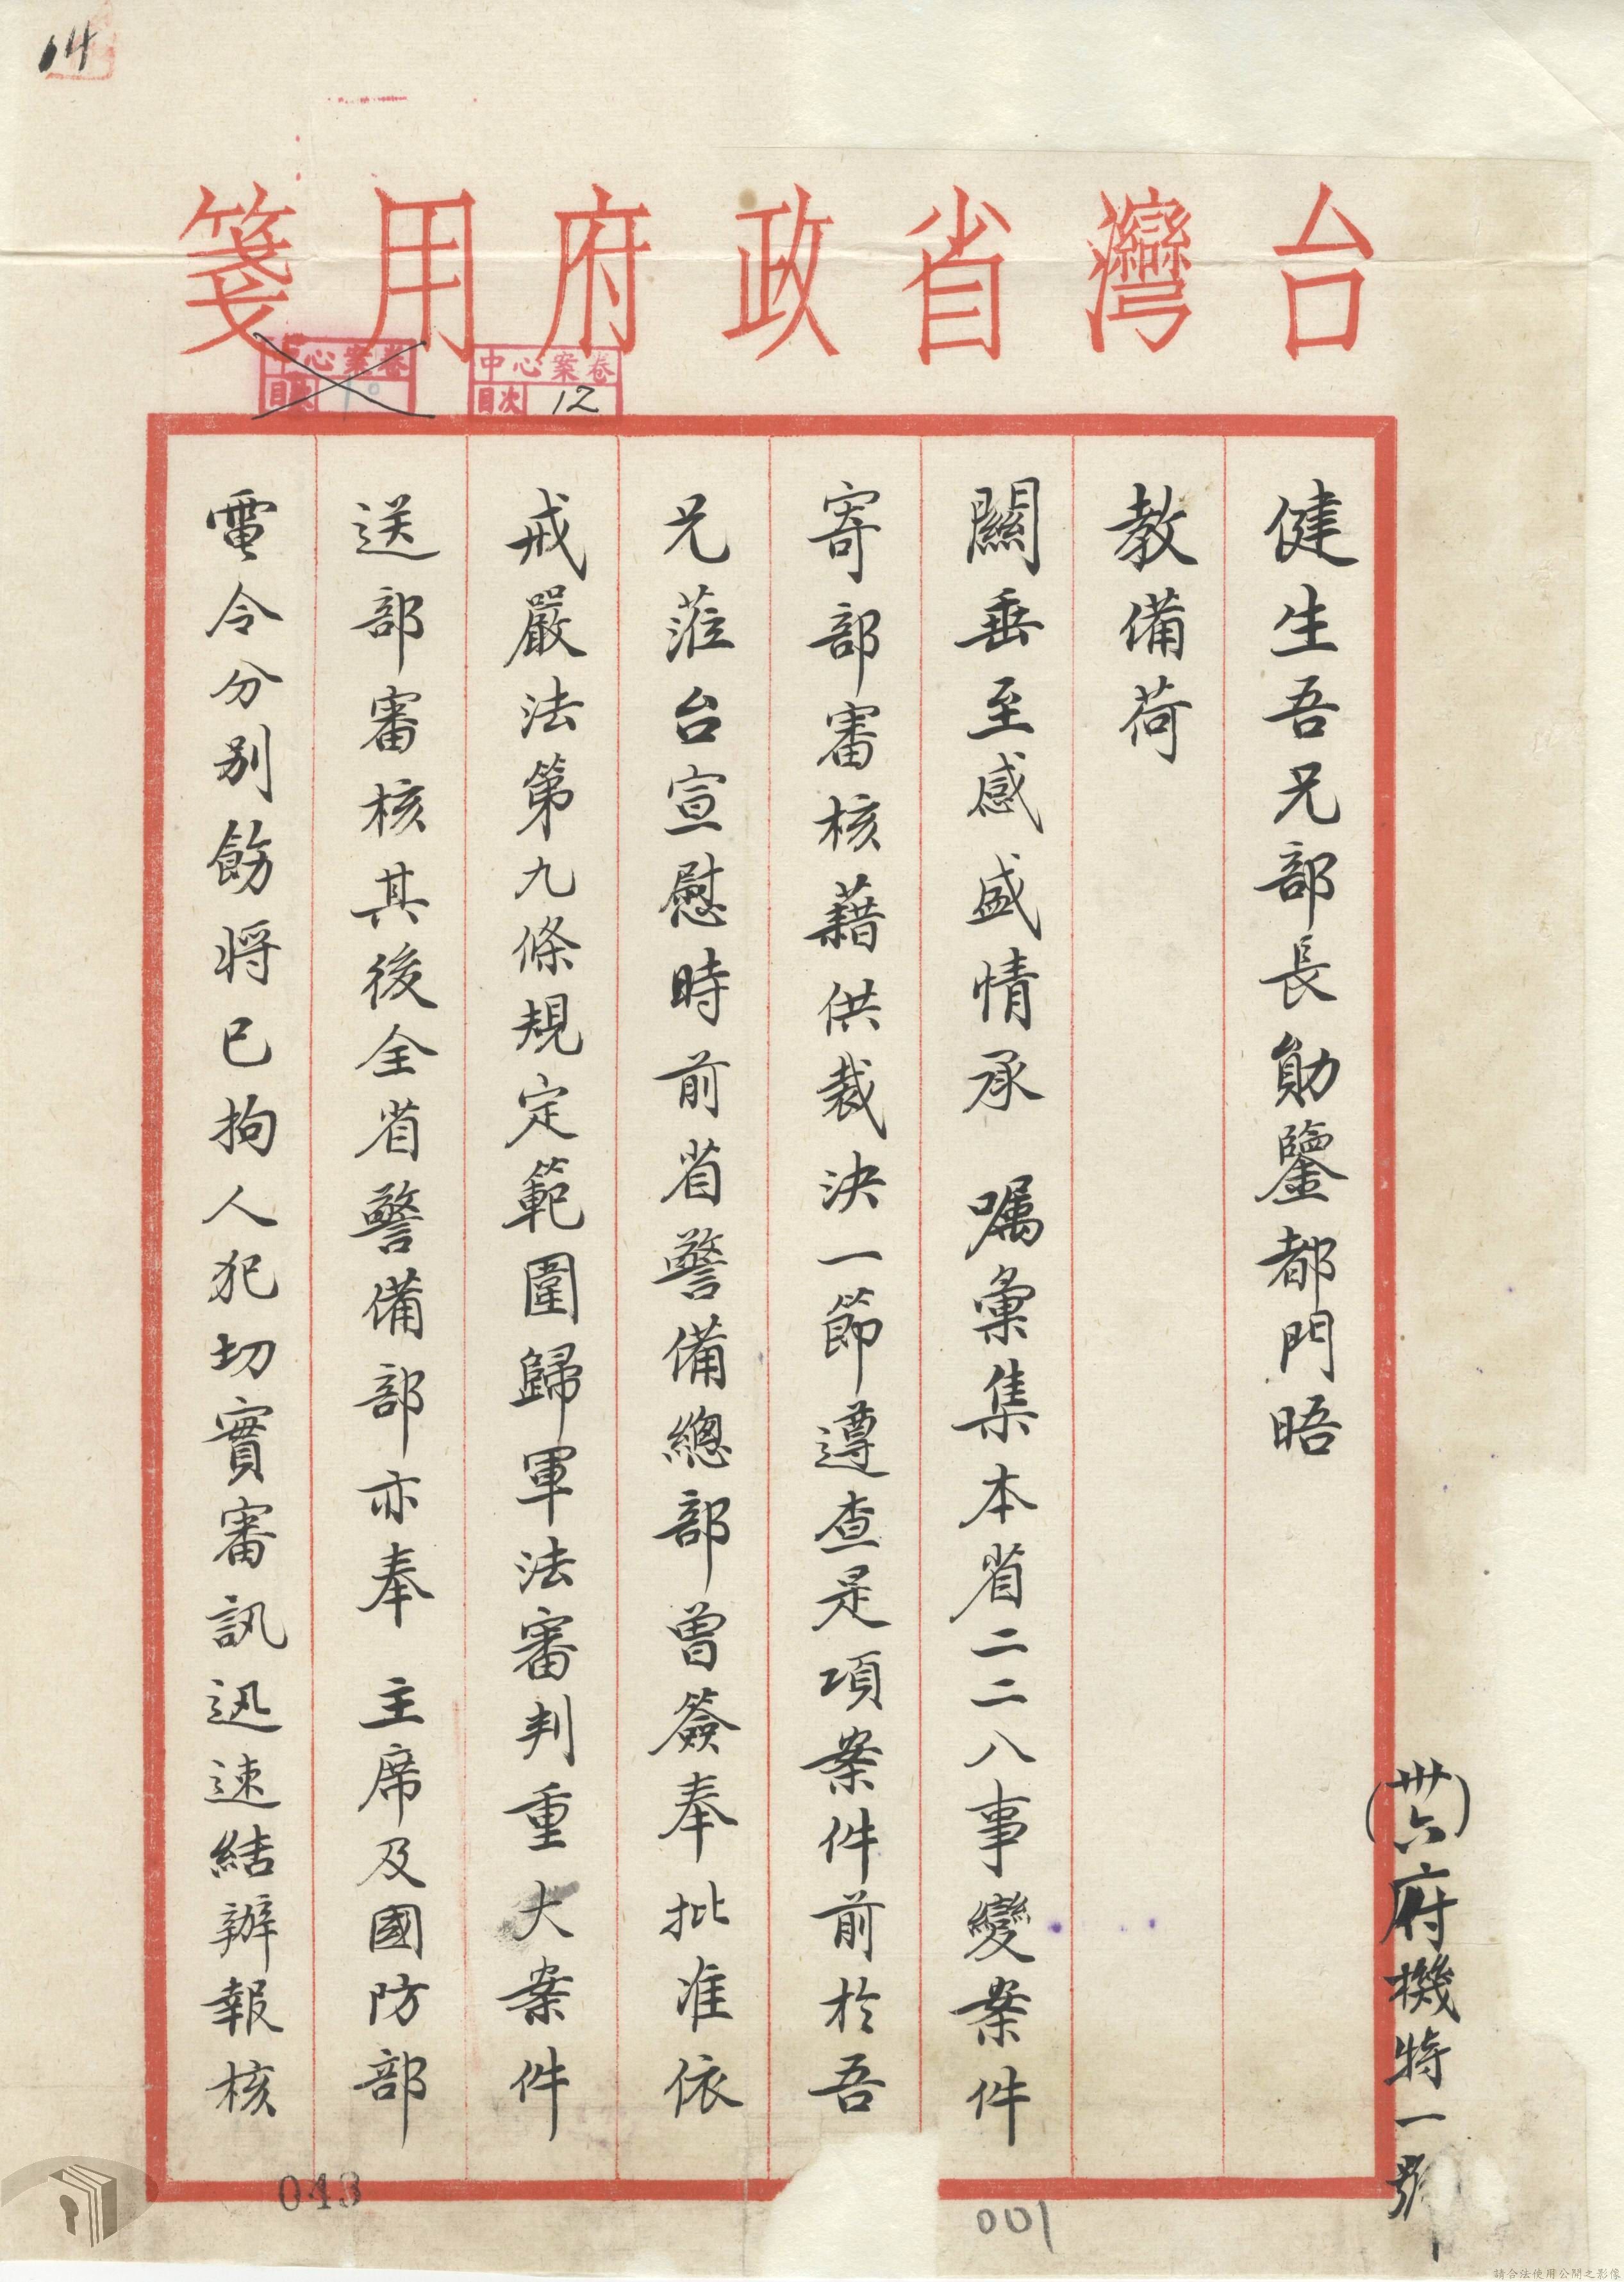 14
台灣省政府用箋
中心案卷
目次 12
中心案卷
目次
(卅六)府機特一號
健生吾兄部長勛鑒都門晤
教備荷
關垂至感盛情承 囑彙集本省二二八事變案件
寄部審核藉供裁決一節遵查是項案件前於吾
兄蒞台宣慰時前省警備總部曾簽奉批准依
戒嚴法第九條規定範圍歸軍法審判重大案件
送部審核其後全省警備部亦奉 主席及國防部
電令分別飭將已拘人犯切實審訊迅速結辦報核
043
001
請合法使用公開之影像